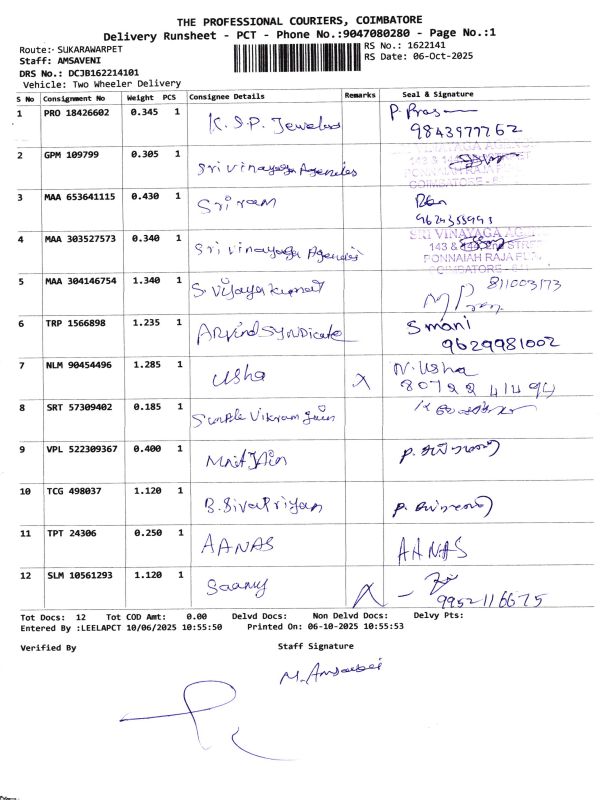 THE PROFESSIONAL COURIERS, COIMBATORE
Delivery Runsheet - PCT - Phone No.:9047080280 - Page No.:1
Route:- SUKARAWARPET
RS No.: 1622141
Staff: AMSAVENI
RS Date: 06-Oct-2025
DRS No.: DCJB162214101
Vehicle: Two Wheeler Delivery
S No Consignment No Weight PCS Consignee Details Remarks Seal & Signature
1 PRO 18426602 0.345 1 K.S.P. Jewelers P. Prasa
9843977762
2 GPM 109799 0.305 1 Sri Vinayaga Agencies
COIMBATORE
3 MAA 653641115 0.430 1 Sriram
9624355993
4 MAA 303527573 0.340 1 Sri Vinayaga Agencies SRI VINAYAGA
143 &
PONNAIAH RAJA PURAM
COIMBATORE
5 MAA 304146754 1.340 1 S. Vijayakumar 811003173
6 TRP 1566898 1.235 1 Arvind Syndicate S mani
9629981002
7 NLM 90454496 1.285 1 Usha X N. Usha
8 SRT 57309402 0.185 1 Vikram Jain
9 VPL 522309367 0.400 1 Jain P.
10 TCG 498037 1.120 1 B. Siva Priyan P.
11 TPT 24306 0.250 1 AANAS AANAS
12 SLM 10561293 1.120 1
9952116675
Tot Docs: 12 Tot COD Amt: 0.00 Delvd Docs: Non Delvd Docs: Delvy Pts:
Entered By :LEELAPCT 10/06/2025 10:55:50 Printed On: 06-10-2025 10:55:53
Verified By Staff Signature